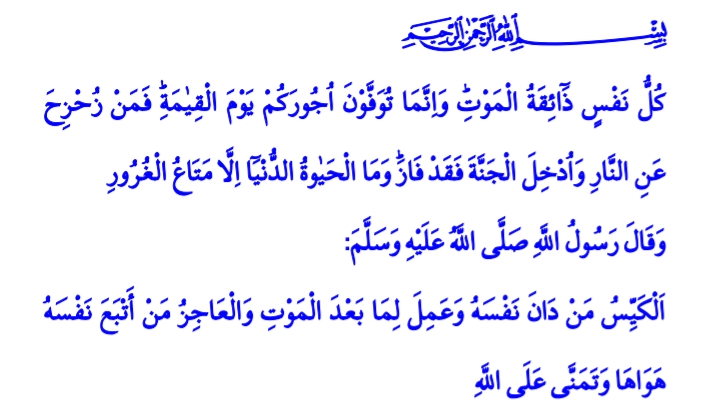 بِسْمِ اللهِ الرَّحْمٰنِ الرَّحِيمِ
كُلُّ نَفْسٍ ذَٓائِقَةُ الْمَوْتِۜ وَاِنَّمَا تُوَفَّوْنَ اُجُورَكُمْ يَوْمَ الْقِيٰمَةِۜ فَمَنْ زُحْزِحَ
عَنِ النَّارِ وَاُدْخِلَ الْجَنَّةَ فَقَدْ فَازَۜ وَمَا الْحَيٰوةُ الدُّنْيَٓا اِلَّا مَتَاعُ الْغُرُورِ
وَقَالَ رَسُولُ اللَّهِ صَلَّى اللَّهُ عَلَيْهِ وَسَلَّمَ:
اَلْكَيِّسُ مَنْ دَانَ نَفْسَهُ وَعَمِلَ لِمَا بَعْدَ الْمَوْتِ وَالْعَاجِزُ مَنْ أَتْبَعَ نَفْسَهُ
هَوَاهَا وَتَمَنَّى عَلَى اللَّهِ